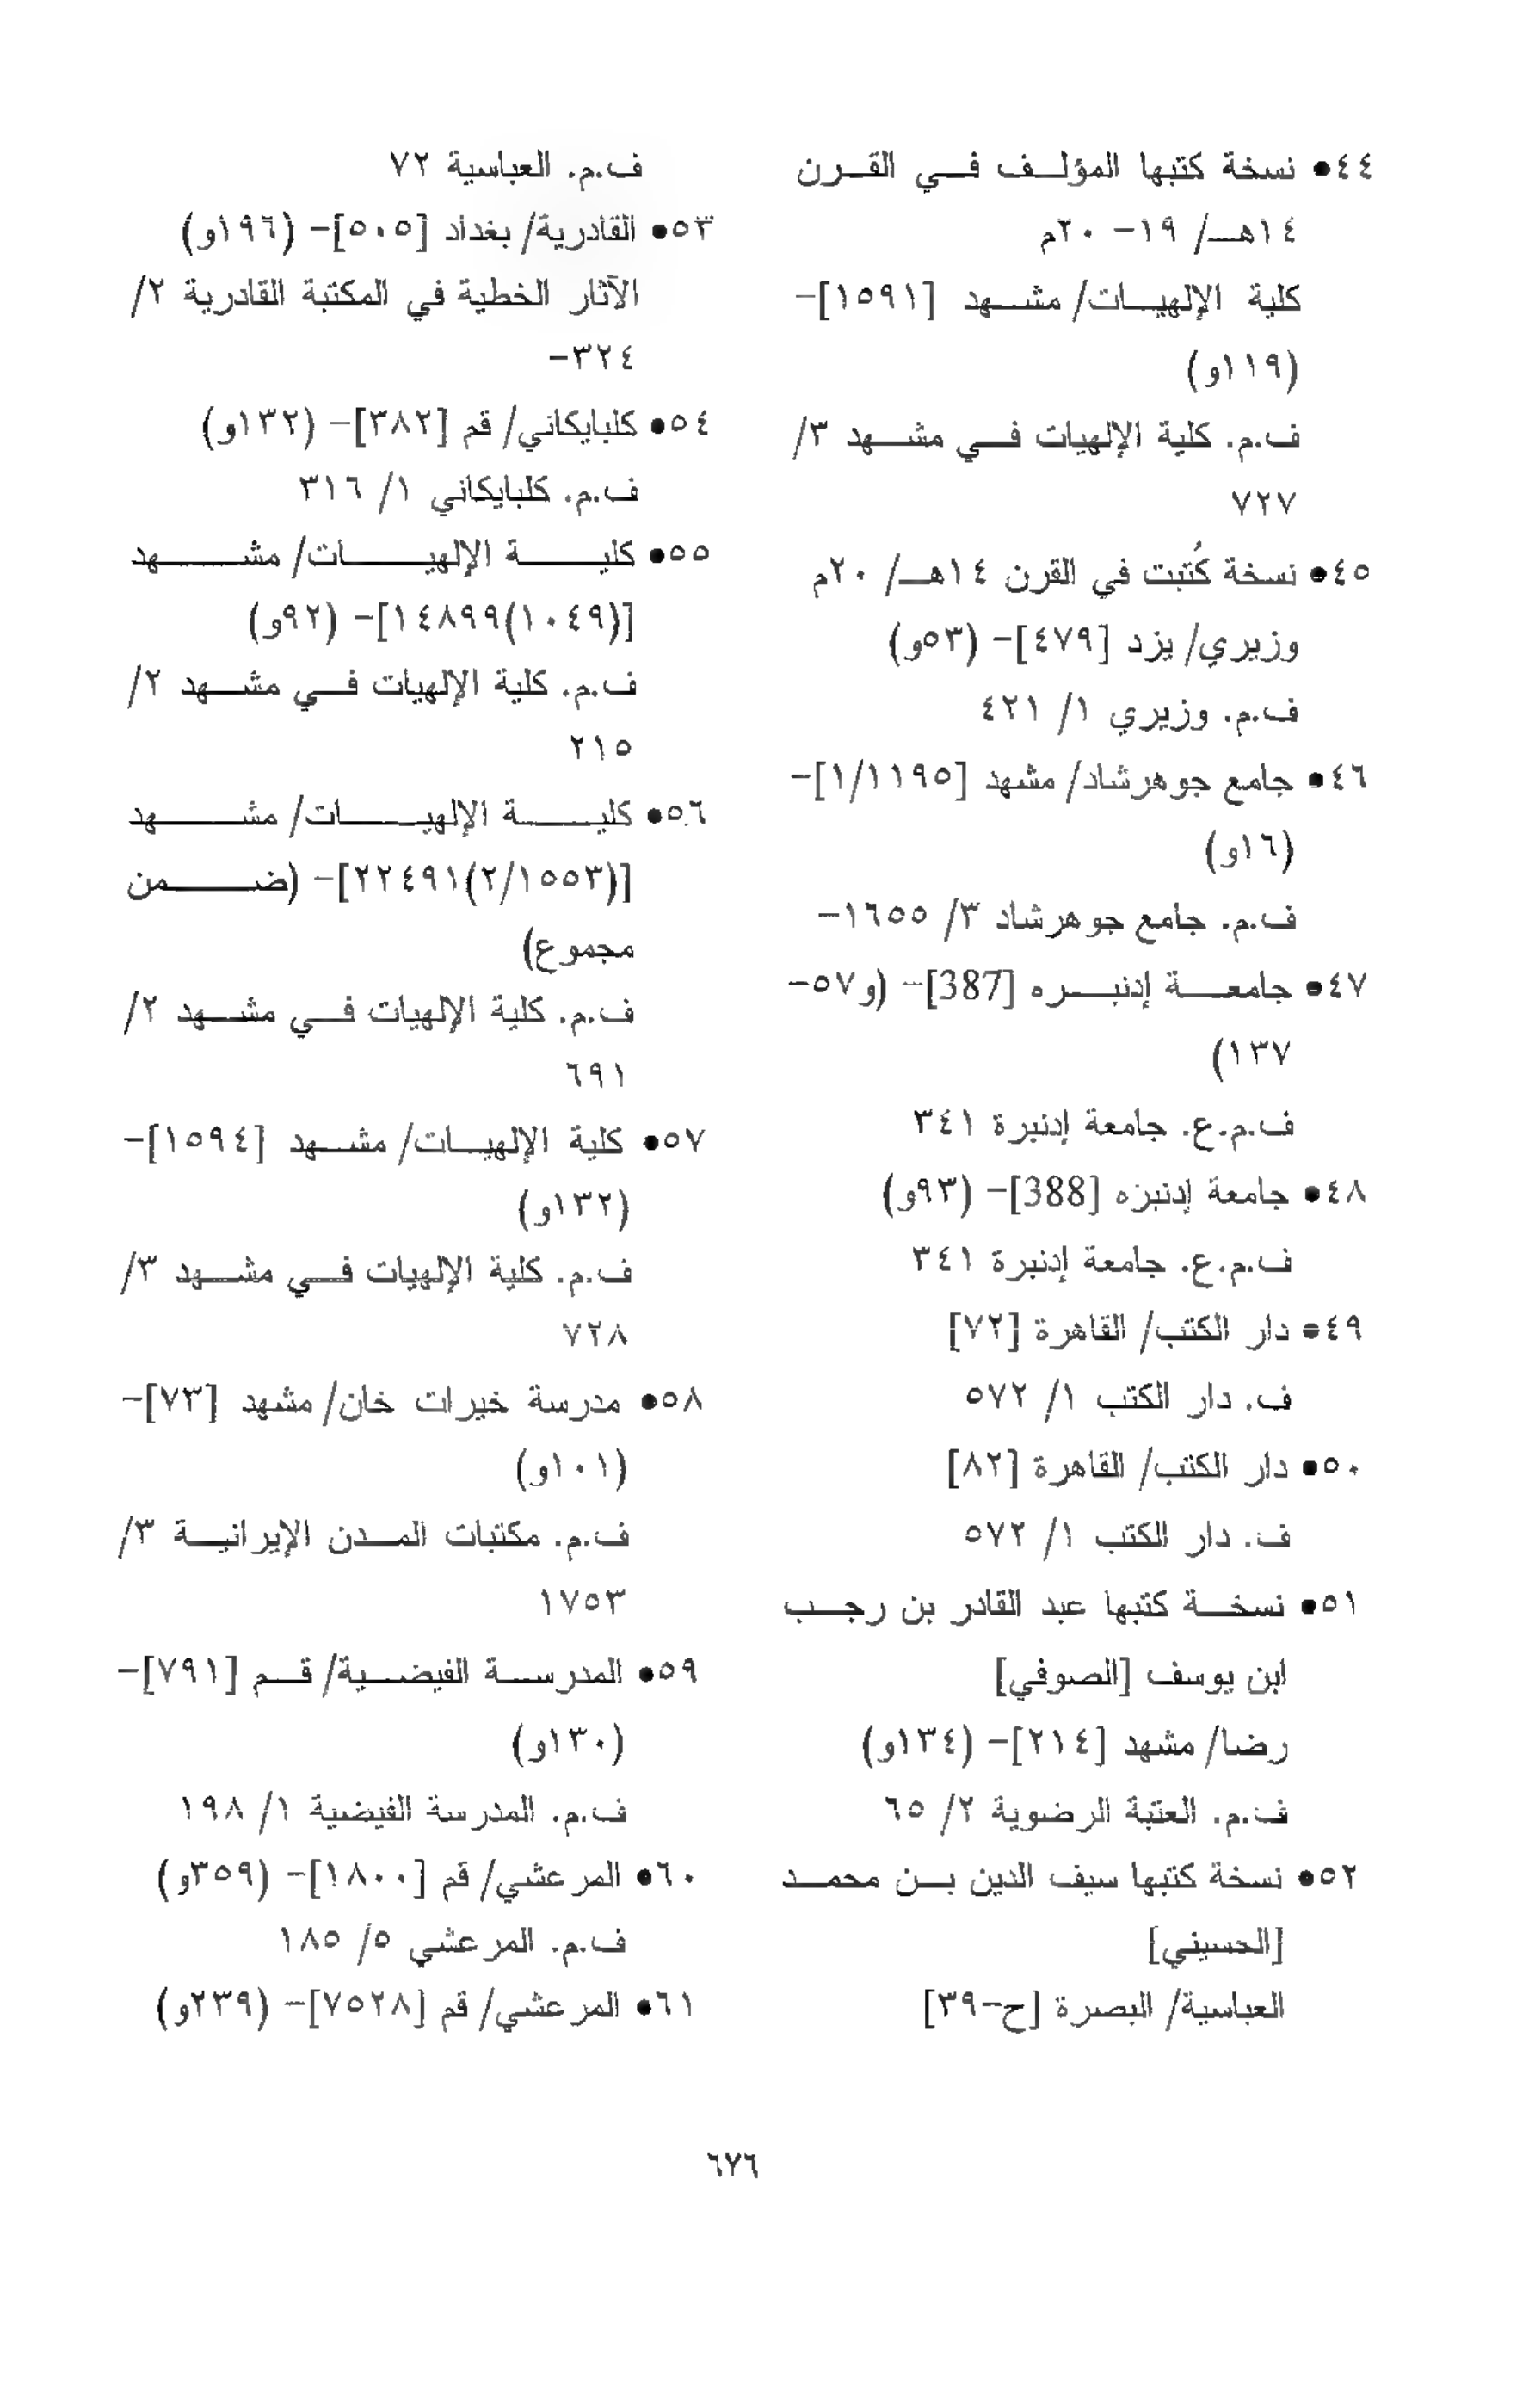 ٤٤• نسخة كتبها المؤلف في القرن
١٤هـ/ ١٩- ٢٠م
كلية الإلهيات/ مشهد [١٥٩١]-
(١١٩و)
ف.م. كلية الإلهيات في مشهد ٣/
٧٢٧
٤٥• نسخة كُتبت في القرن ١٤هـ/ ٢٠م
وزيري/ يزد [٤٧٩]- (٥٣و)
ف.م. وزيري ١/ ٤٢١
٤٦• جامع جوهرشاد/ مشهد [١/١١٩٥]-
(١٦و)
ف.م. جامع جوهرشاد ٣/ ١٦٥٥-
٤٧• جامعة إدنبره [387]- (و٥٧-
١٣٧)
ف.م.ع. جامعة إدنبرة ٣٤١
٤٨• جامعة إدنبزه [388]- (٩٣و)
ف.م.ع. جامعة إدنبرة ٣٤١
٤٩• دار الكتب/ القاهرة [٧٢]
ف. دار الكتب ١/ ٥٧٢
٥٠• دار الكتب/ القاهرة [٨٢]
ف. دار الكتب ١/ ٥٧٢
٥١• نسخة كتبها عبد القادر بن رجب
ابن يوسف [الصوفي]
رضا/ مشهد [٢١٤]- (١٣٤و)
ف.م. العتبة الرضوية ٢/ ٦٥
٥٢• نسخة كتبها سيف الدين بن محمد
[الحسيني]
العباسية/ البصرة [ح-٣٩]
ف.م. العباسية ٧٢
٥٣• القادرية/ بغداد [٥٠٥]- (١٩٦و)
الآثار الخطية في المكتبة القادرية ٢/
٣٢٤-
٥٤• كلبايكاني/ قم [٣٨٢]- (١٣٢و)
ف.م. كلبايكاني ١/ ٣١٦
٥٥• كلية الإلهيات/ مشهد
[(١٠٤٩)١٤٨٩٩]- (٩٢و)
ف.م. كلية الإلهيات في مشهد ٢/
٢١٥
٥٦• كلية الإلهيات/ مشهد
[(٢/١٥٥٣)٢٢٤٩١]- (ضمن
مجموع)
ف.م. كلية الإلهيات في مشهد ٢/
٦٩١
٥٧• كلية الإلهيات/ مشهد [١٥٩٤]-
(١٣٢و)
ف.م. كلية الإلهيات في مشهد ٣/
٧٢٨
٥٨• مدرسة خيرات خان/ مشهد [٧٣]-
(١٠١و)
ف.م. مكتبات المدن الإيرانية ٣/
١٧٥٣
٥٩• المدرسة الفيضية/ قم [٧٩١]-
(١٣٠و)
ف.م. المدرسة الفيضية ١/ ١٩٨
٦٠• المرعشي/ قم [١٨٠٠]- (٣٥٩و)
ف.م. المرعشي ٥/ ١٨٥
٦١• المرعشي/ قم [٧٥٢٨]- (٢٣٩و)
٦٧٦